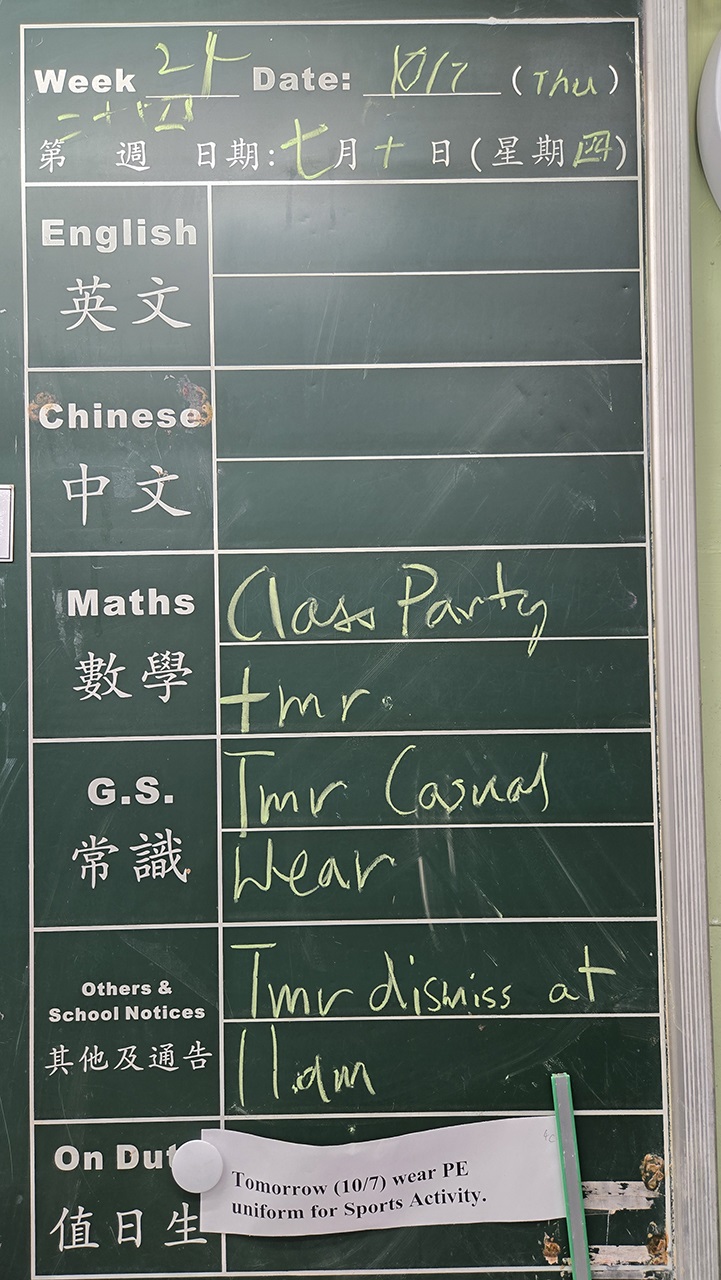 Week 24 Date: 10/7 (Thu)
第二十四週 日期:七月十日(星期四)
English
英文
Chinese
中文
Maths Class Party
數學 tmr.
G.S. Tmr Casual
常識 Wear
Others &
School Notices Tmr dismiss at
其他及通告 11am
On Dut
值日生
Tomorrow (10/7) wear PE
uniform for Sports Activity.